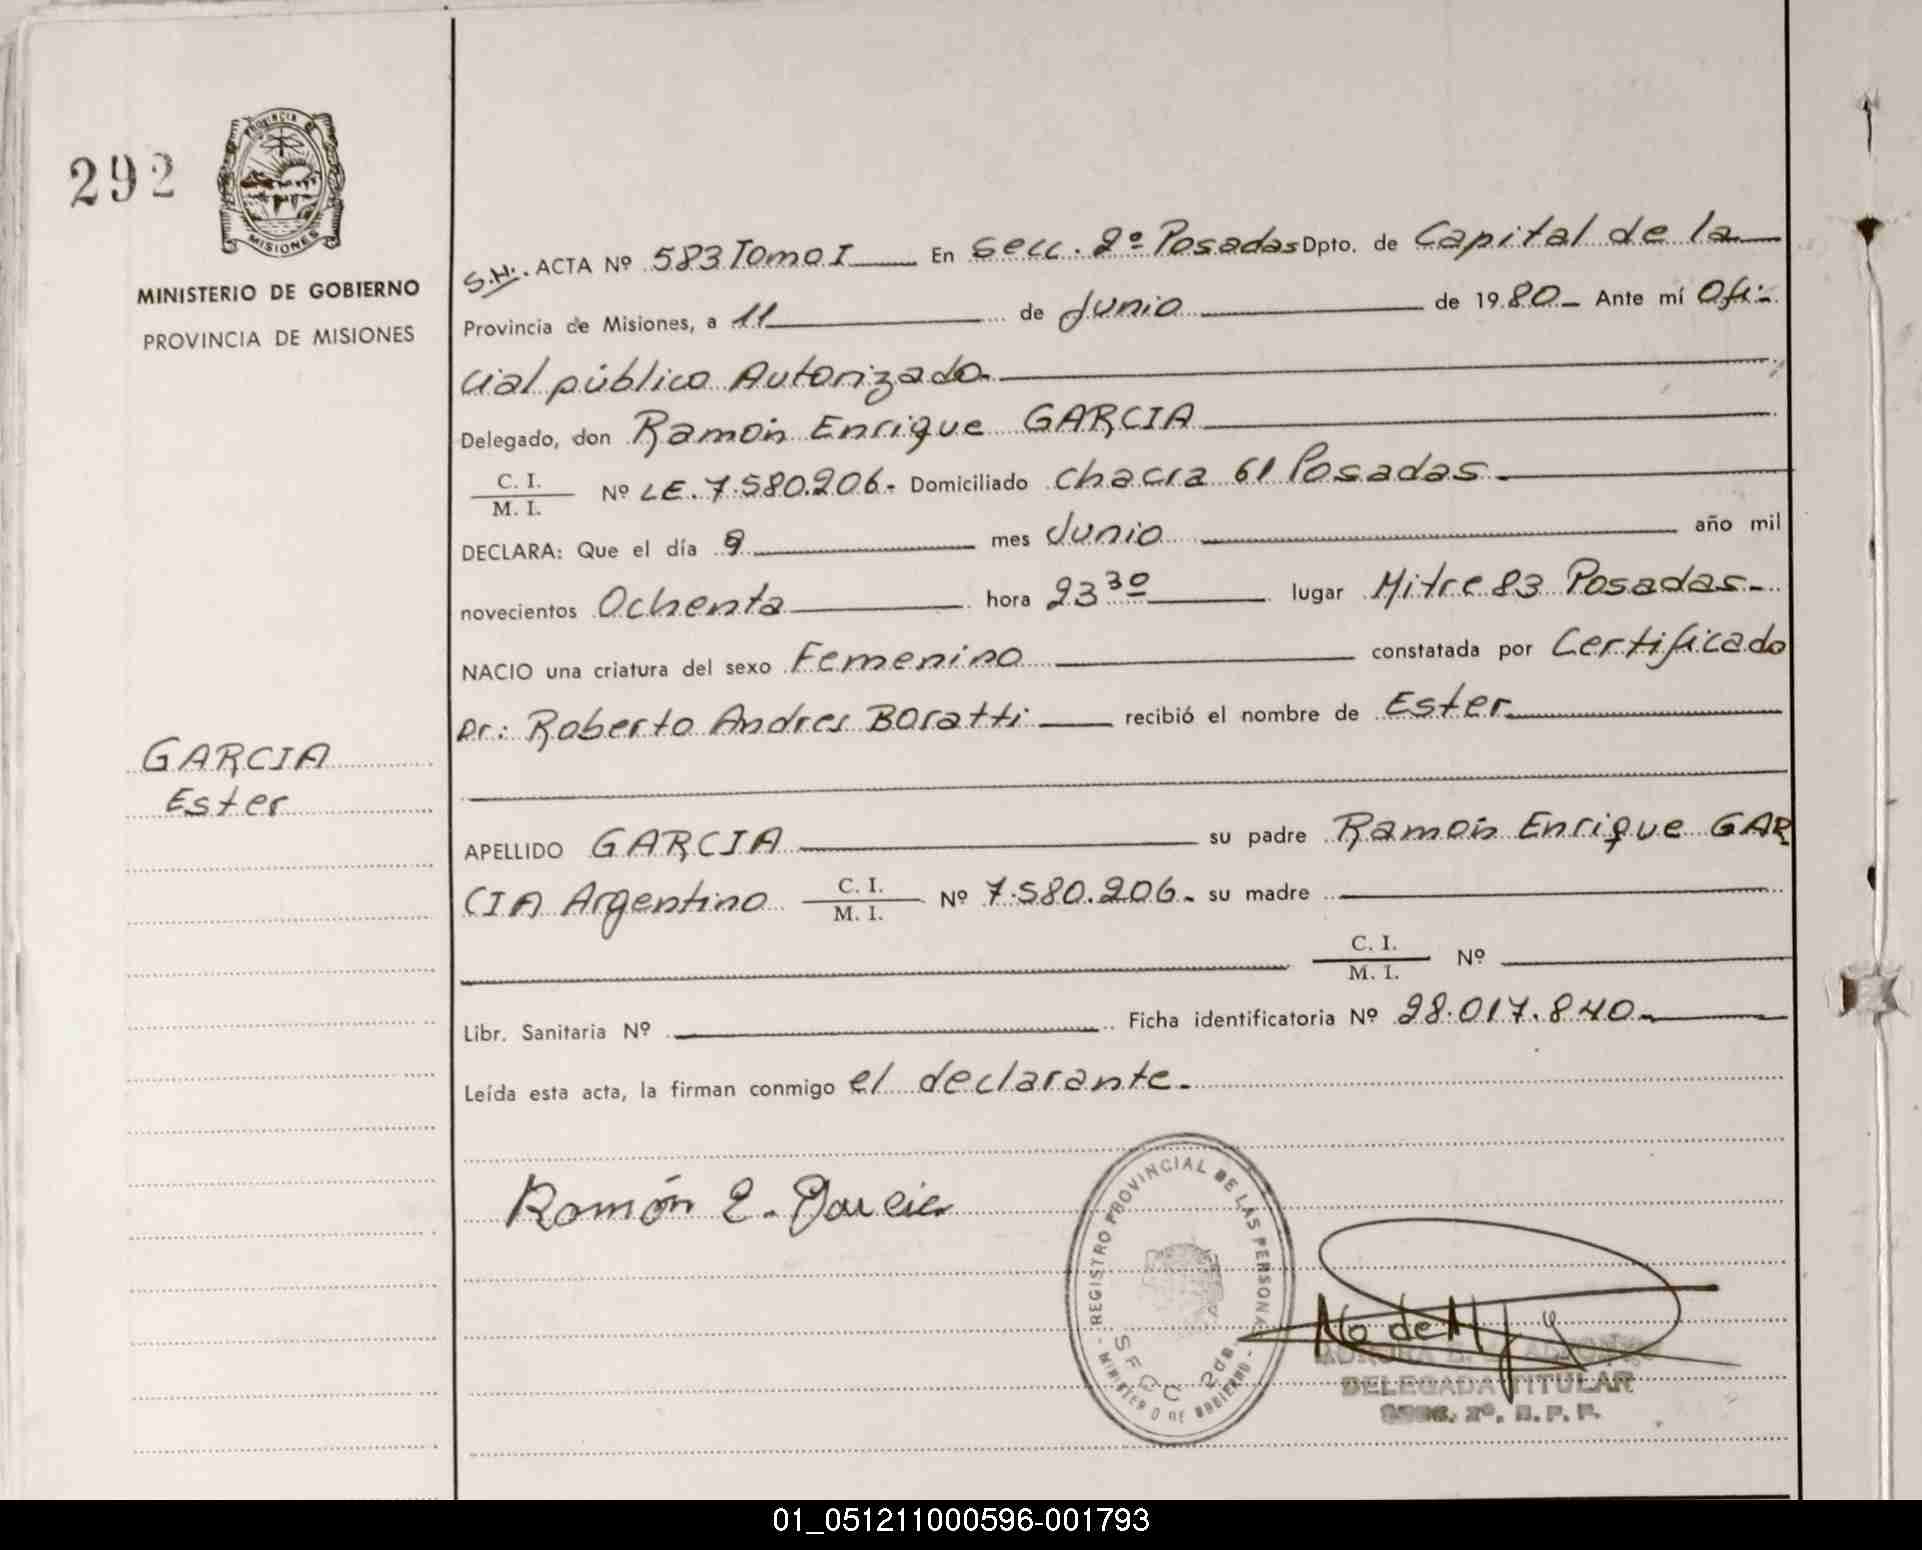 292
PROVINCIA DE
MISIONES
MINISTERIO DE GOBIERNO
PROVINCIA DE MISIONES
S.H. ACTA Nº 583 Tomo I En Secc. 2º Posadas Dpto. de Capital de la
Provincia de Misiones, a 11 de Junio de 1980 Ante mí Ofi-
cial público Autorizado
Delegado, don Ramón Enrique GARCIA
C. I.
M. I. Nº LE. 7.580.206.- Domiciliado chacra 61 Posadas
DECLARA: Que el día 9 mes Junio año mil
novecientos Ochenta hora 23 30 lugar Mitre 83 Posadas
NACIO una criatura del sexo Femenino constatada por Certificado
Dr: Roberto Andres Boratti recibió el nombre de Ester
GARCIA
Ester
APELLIDO GARCIA su padre Ramón Enrique GAR
CIA Argentino C. I.
M. I. Nº 7.580.206.- su madre
C. I.
M. I. Nº
Libr. Sanitaria Nº Ficha identificatoria Nº 28.017.840
Leída esta acta, la firman conmigo el declarante.
Ramón E. Garcia
REGISTRO PROVINCIAL DE LAS PERSONAS
SECC 2da.
MINISTERIO DE GOBIERNO
DELEGADA TITULAR
01_051211000596-001793